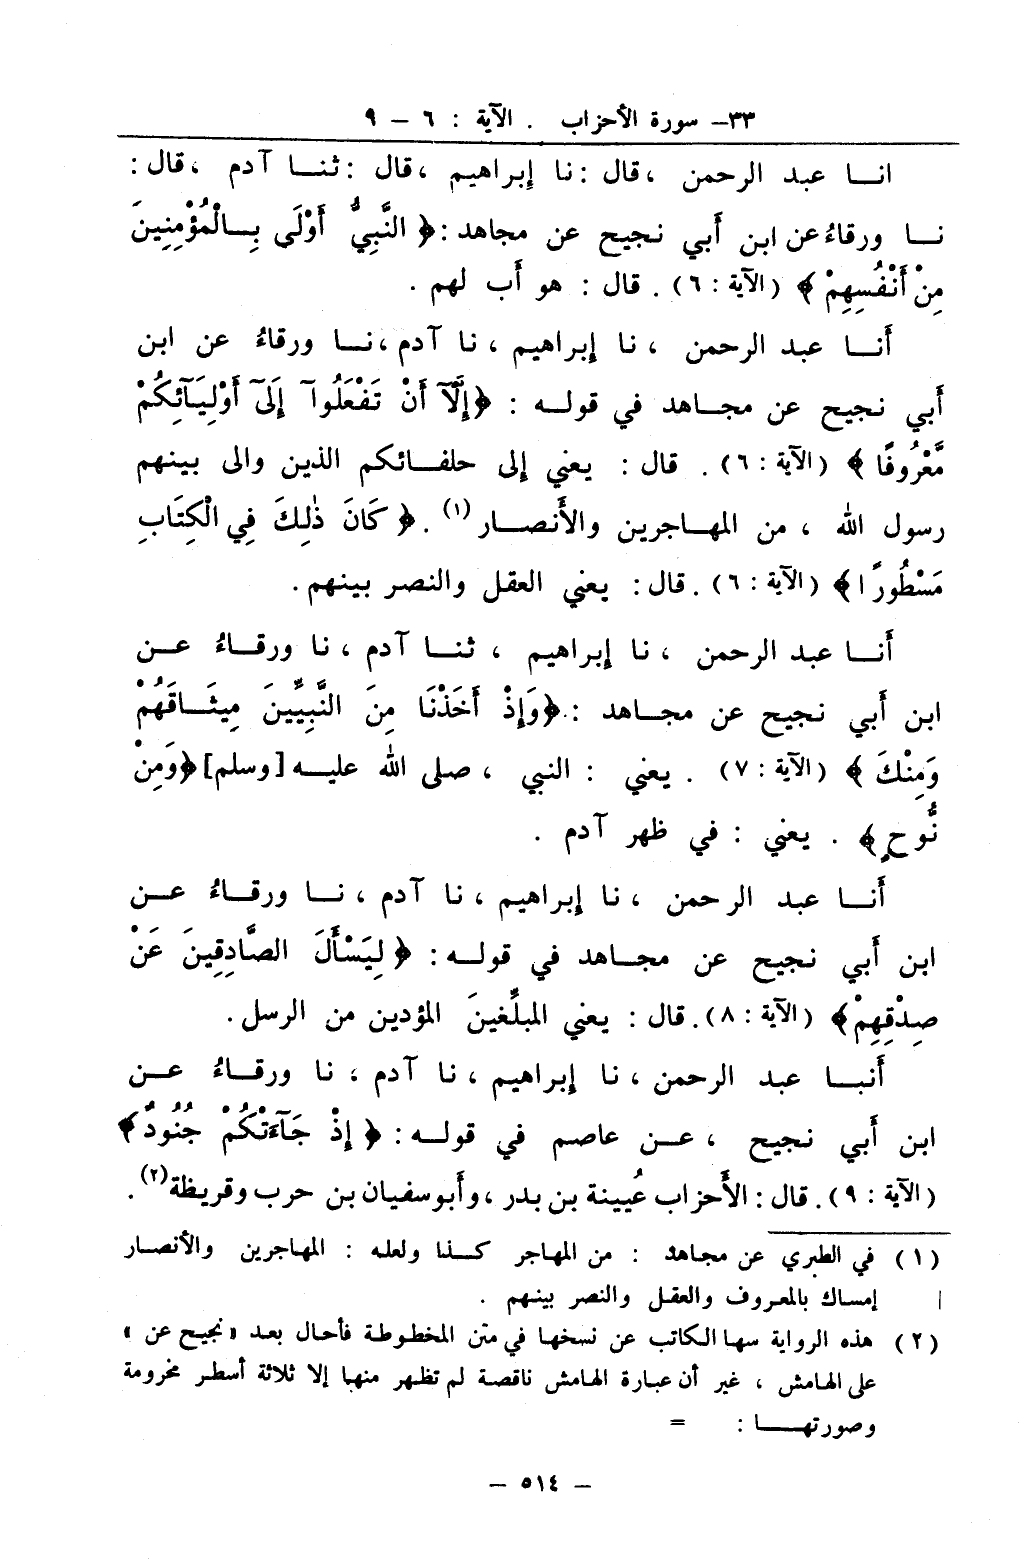 ٣٣– سورة الأحزاب . الآية : ٦ – ٩
انا عبد الرحمن ، قال : نا إبراهيم ، قال : ثنا آدم ، قال :
نا ورقاءُ عن ابن أبي نجيح عن مجاهد : ﴿ النَّبِيُّ أَوْلَى بِالْمُؤْمِنِينَ
مِنْ أَنْفُسِهِمْ ﴾ (الآية : ٦) . قال : هو أب لهم .
أنا عبد الرحمن ، نا إبراهيم ، نا آدم ، نا ورقاءُ عن ابن
أبي نجيح عن مجاهد في قوله : ﴿إِلَّآ أَنْ تَفْعَلُوآ إِلَىَٰٓ أَوْلِيَآئِكُمْ
مَّعْرُوفًا ﴾ (الآية : ٦) . قال : يعني إلى حلفائكم الذين والى بينهم
رسول الله ، من المهاجرين والأنصار (١) . ﴿ كَانَ ذٰلِكَ فِي الْكِتَابِ
مَسْطُورًا ﴾ (الآية : ٦) . قال : يعني العقل والنصر بينهم .
أنا عبد الرحمن ، نا إبراهيم ، ثنا آدم ، نا ورقاءُ عن
ابن أبي نجيح عن مجاهد : ﴿وَإِذْ أَخَذْنَا مِنَ النَّبِيِّينَ مِيثَاقَهُمْ
وَمِنْكَ ﴾ (الآية : ٧) . يعني : النبي ، صلى الله عليه [وسلم] ﴿وَمِنْ
نُّوحٍ﴾ . يعني : في ظهر آدم .
أنا عبد الرحمن ، نا إبراهيم ، نا آدم ، نا ورقاءُ عن
ابن أبي نجيح عن مجاهد في قوله : ﴿ لِيَسْأَلَ الصَّادِقِينَ عَنْ
صِدْقِهِمْ﴾ (الآية : ٨) . قال : يعني المبلِّغينَ المؤدين من الرسل .
أنبا عبد الرحمن ، نا إبراهيم ، نا آدم ، نا ورقاءُ عن
ابن أبي نجيح ، عن عاصم في قوله : ﴿ إِذْ جَآءَتْكُمْ جُنُودٌ﴾
(الآية : ٩) . قال : الأحزاب عُيينة بن بدر ، وأبو سفيان بن حرب وقريظة (٢) .
(١) في الطبري عن مجاهد : من المهاجر كذا ولعله : المهاجرين والأنصار
إمساك بالمعروف والعقل والنصر بينهم .
(٢) هذه الرواية سها الكاتب عن نسخها في متن المخطوطة فأحال بعد «نجيح عن»
على الهامش ، غير أن عبارة الهامش ناقصة لم تظهر منها إلا ثلاثة أسطر مخرومة
وصورتها : =
– ٥١٤ –